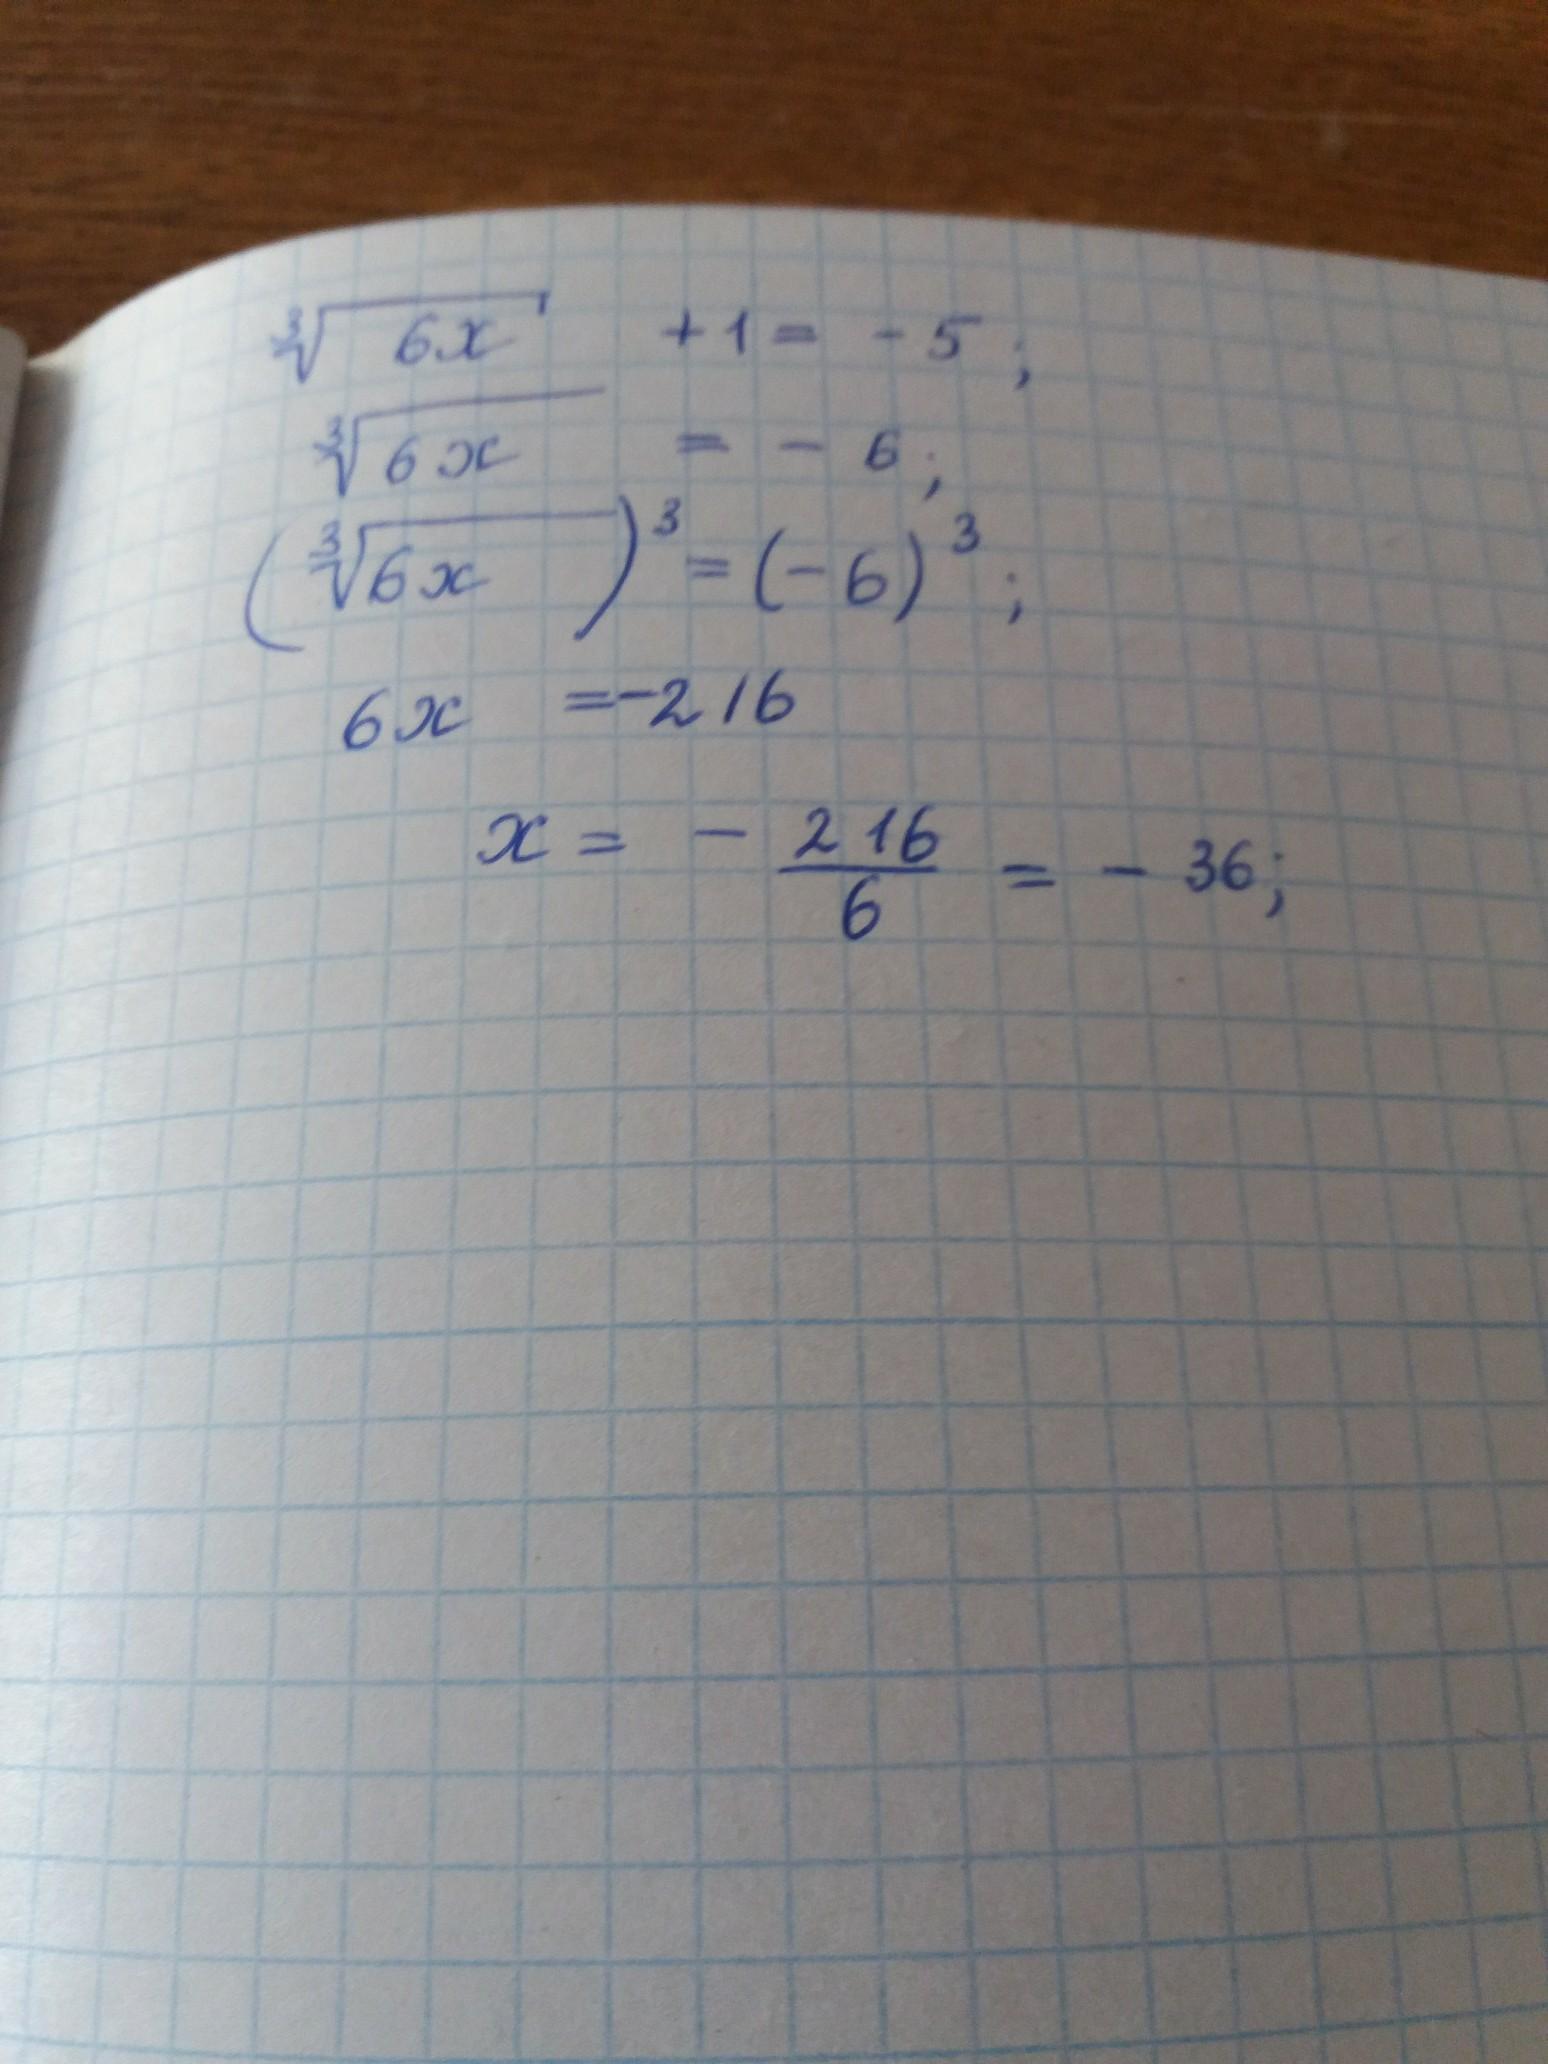 ∛(6x) + 1 = - 5 ;
∛(6x) = - 6 ;
(∛(6x))³ = (- 6)³ ;
6x = -216
x = - 216/6 = - 36;